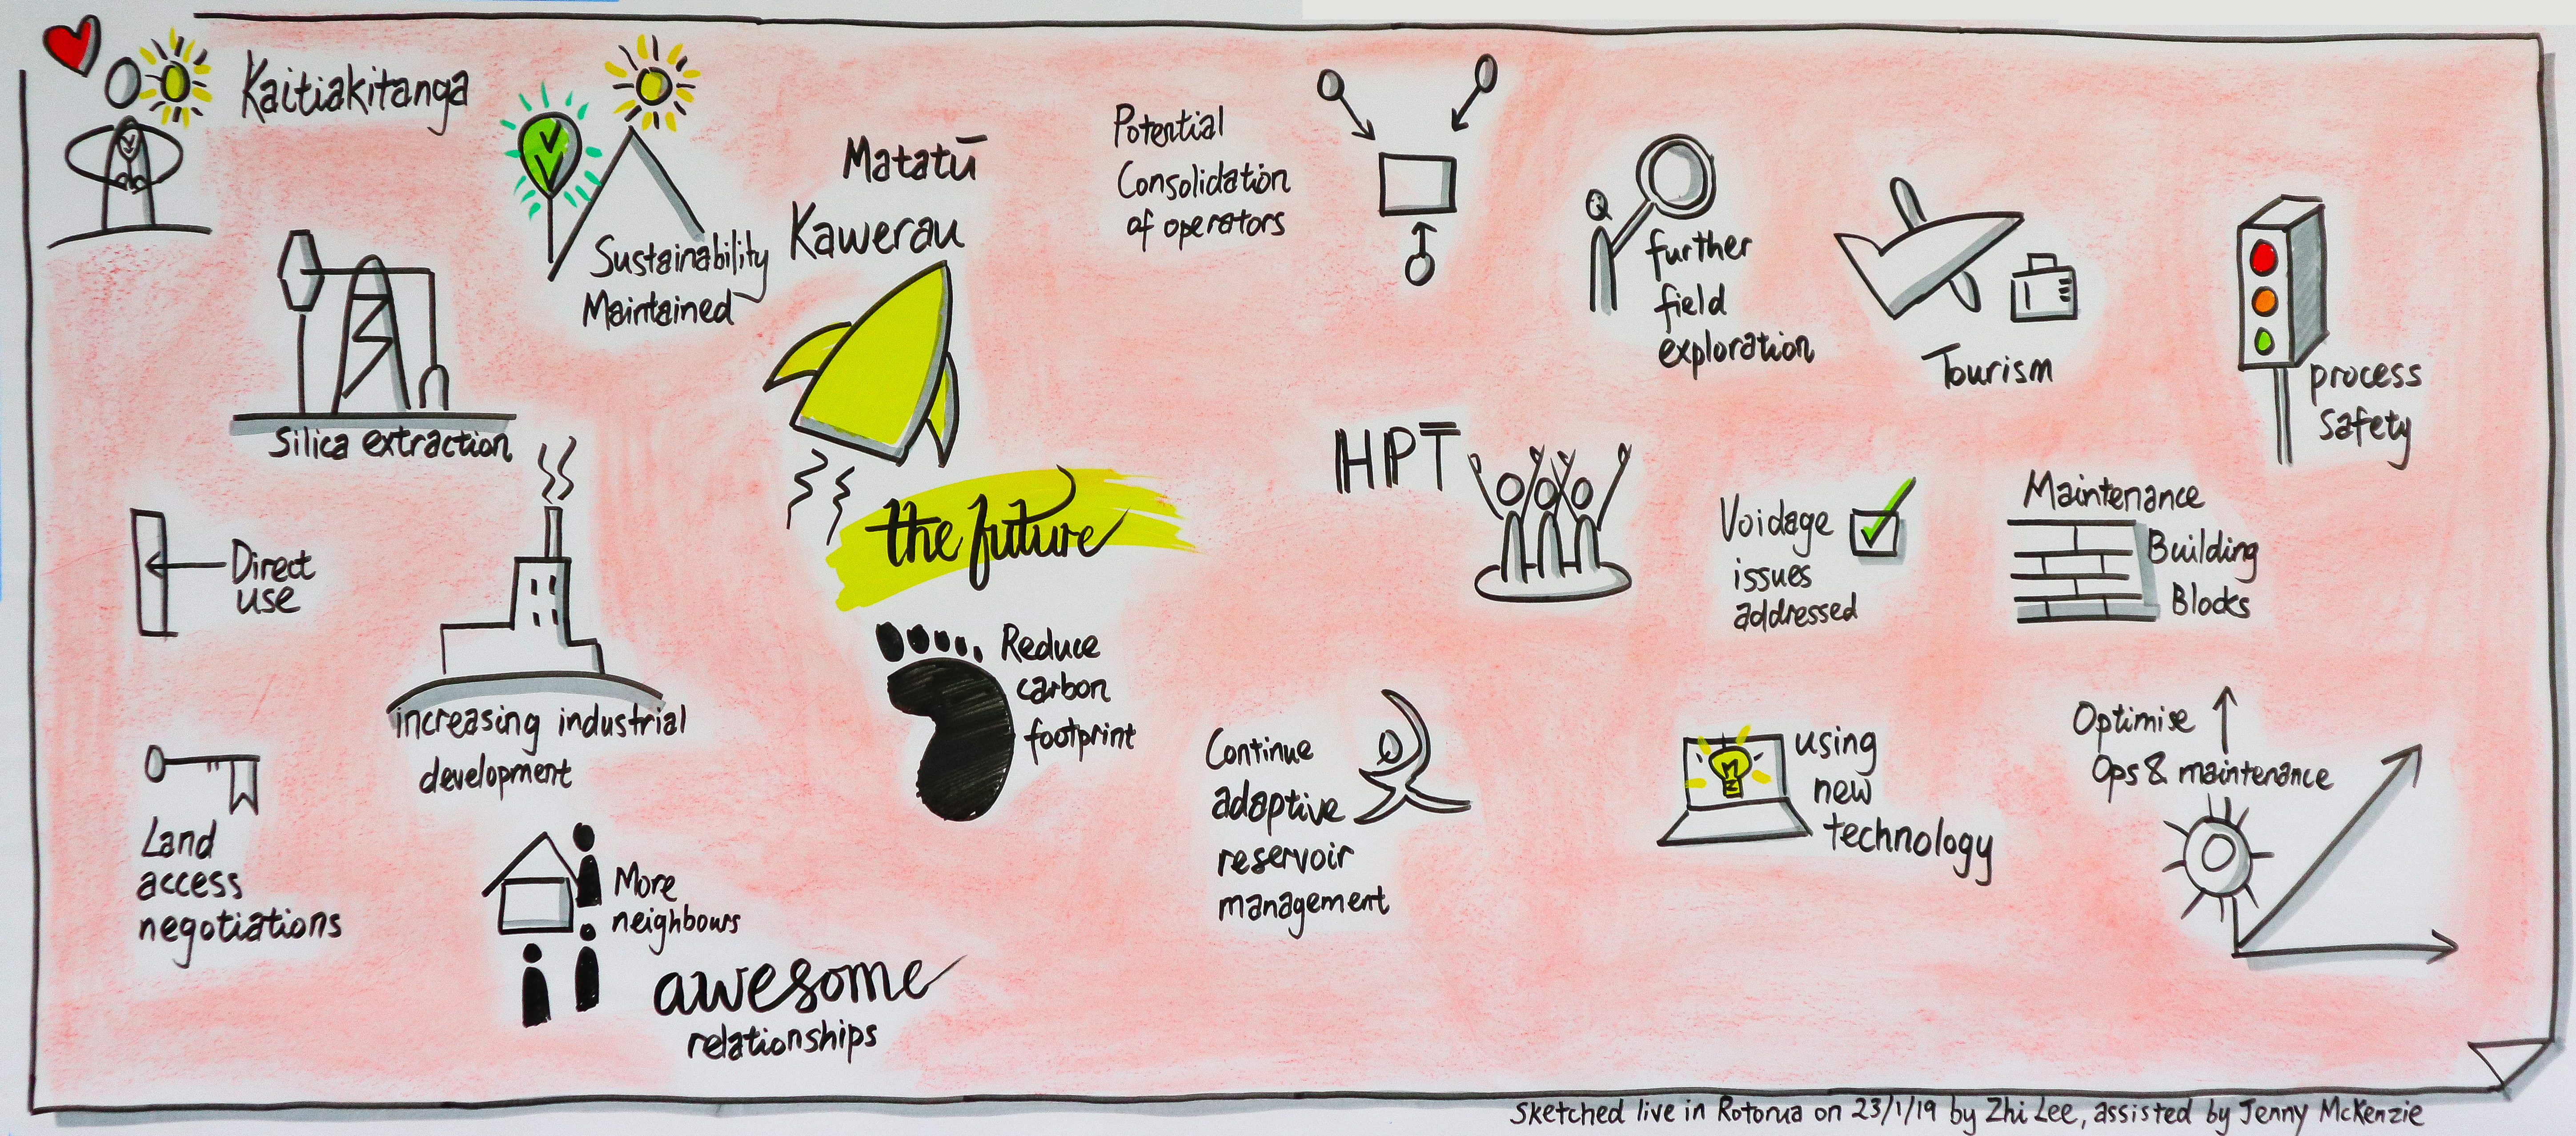 Kaitiakitanga
Sustainability
Maintained
Matatū
Kawerau
Silica extraction
Direct
use
increasing industrial
development
Land
access
negotiations
More
neighbours
awesome
relationships
the future
Reduce
carbon
footprint
Potential
Consolidation
of operators
further
field
exploration
Tourism
process
safety
HPT
Voidage
issues
addressed
Maintenance
Building
Blocks
Continue
adaptive
reservoir
management
using
new
technology
Optimise
Ops & maintenance
Sketched live in Rotorua on 23/1/19 by Zhi Lee, assisted by Jenny McKenzie